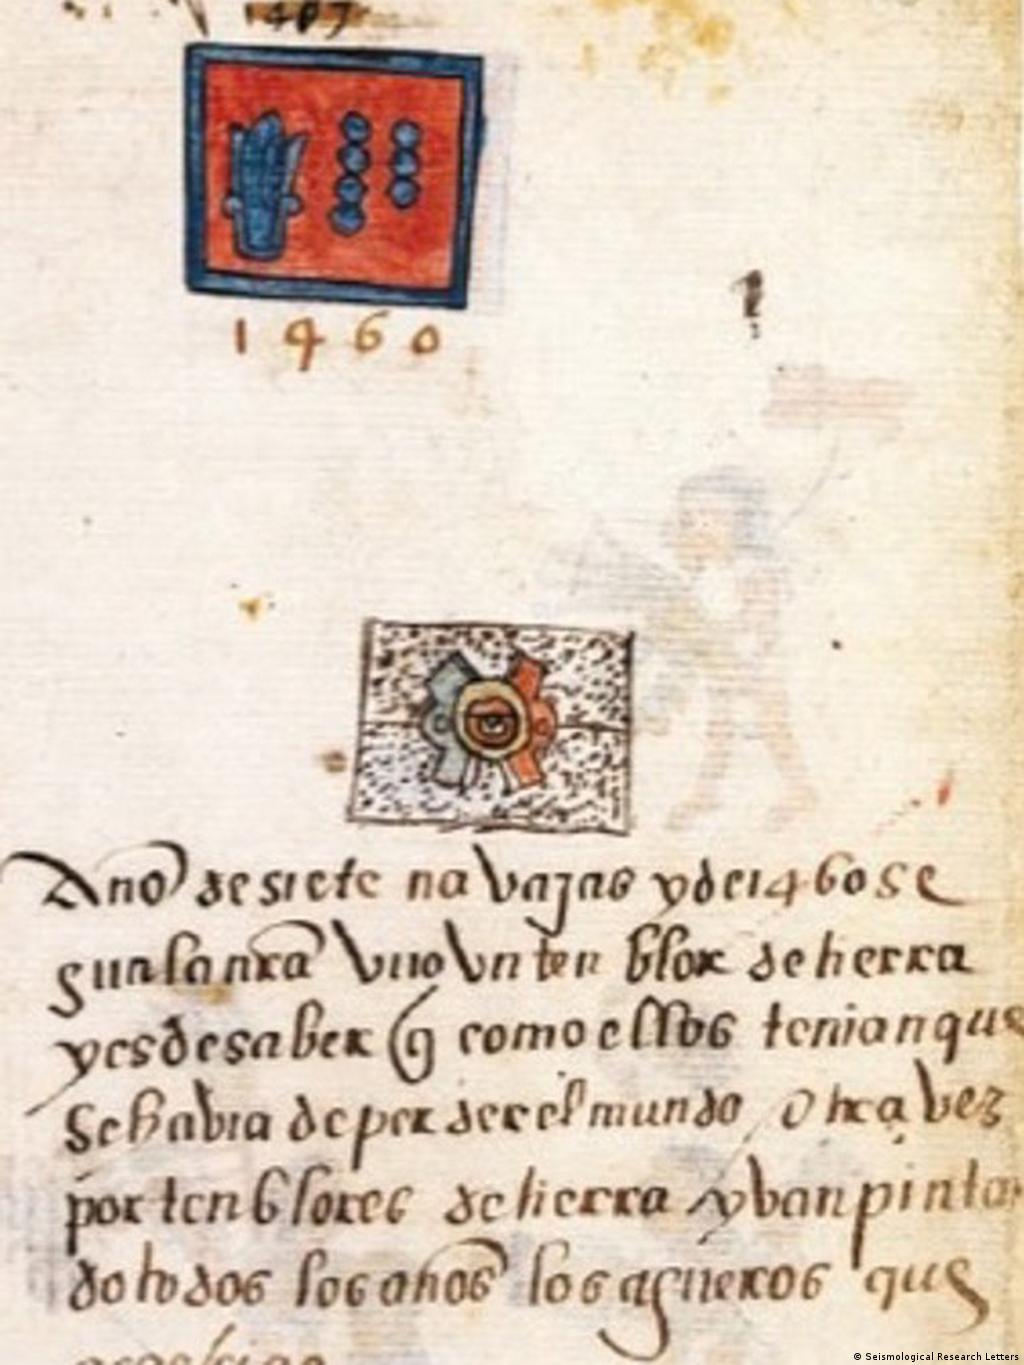 1407
1460
Año de siete navajas y de 1460 se
gun la nrã vuo vn tenblor de tierra
y es de saber q como ellos tenian que
se habia de perder el mundo otra vez
por tenblores de tierra yban pintan
do todos los años los agueros que
© Seismological Research Letters